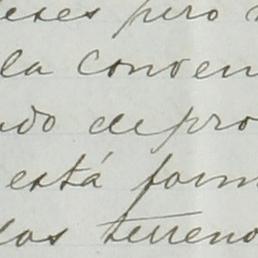 eses pero
la conven
ndo depro
está form
los terreno